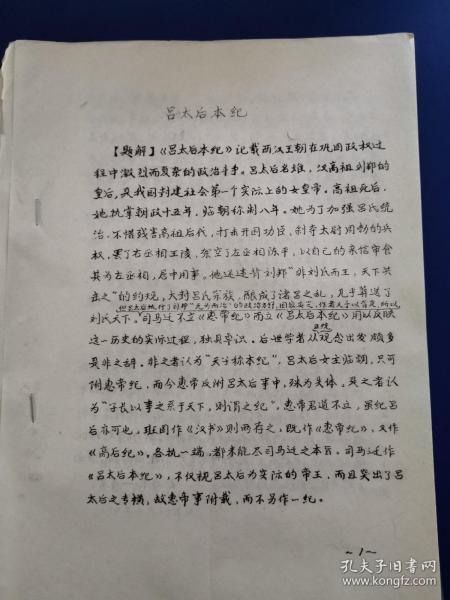 吕太后本纪
【题解】《吕太后本纪》记载西汉王朝在巩固政权过
程中激烈而复杂的政治斗争。吕太后名雉，汉高祖刘邦的
皇后，是我国封建社会第一个实际上的女皇帝。高祖死后，
她执掌朝政十五年，临朝称制八年。她为了加强吕氏统
治，不惜残害高祖后代，打击开国功臣，剥夺太尉周勃的兵
权，罢了右丞相王陵，架空了左丞相陈平，以自己的亲信审食
其为左丞相，居中用事。他还违背刘邦“非刘氏而王，天下共
击之”的约规，大封吕氏宗族，酿成了诸吕之乱，几乎葬送了
但吕太后执行了刘邦“无为而治”的政治方针，国家安定，作者又予以肯定，所以，
刘氏天下。司马迁不立《惠帝纪》而立《吕太后本纪》用以反映
这一历史的实际过程，独具卓识。后世学者从正统观念出发，颇多
是非之辞。非之者认为“天子称本纪”，吕太后女主临朝，只可
附惠帝纪，而今惠帝反附吕太后事中，殊为失体。是之者认
为“子长以事之系于天下，则谓之纪”，惠帝君道不立，虽纪吕
后亦可也。班固作《汉书》则两存之，既作《惠帝纪》，又作
《高后纪》。各执一端，都未能尽司马迁之本旨。司马迁作
《吕太后本纪》，不仅视吕太后为实际的帝王，而且突出了吕
太后之专横，故惠帝事附载，而不另作一纪。
~1~
孔夫子旧书网
www.kongfz.com